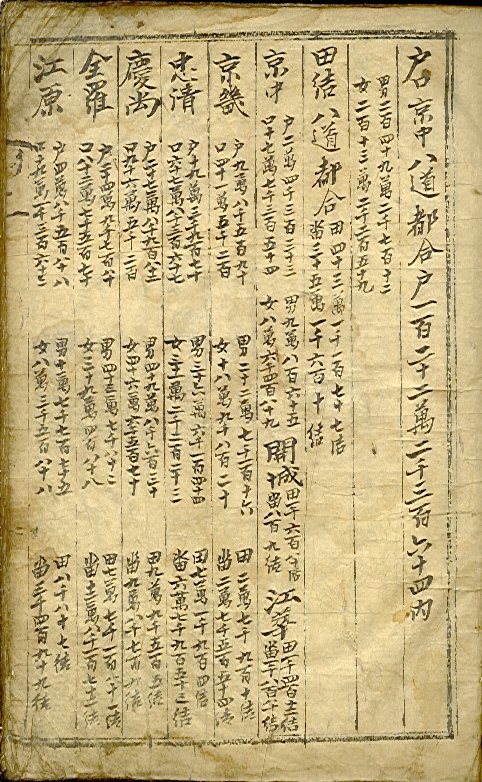 戶 京中八道都合戶一百二十二萬二千三百六十四內
男二百四十九萬二千七百十二
女二百十三萬二千三百五十九
田結八道都合 田四十三萬一千一百七十七結
畓三十五萬一千六百十結
京中 戶二萬四千三百三十三 男九萬八百六十五 開城 田千六百 結 江華 田千四百 結
口十七萬七千三百五十四 女八萬六千四百八十九 畓八百九結 畓 千八百 結
京畿 戶九萬八千五百九十 男二十二萬七千二百十六 田二萬七千九百十結
口四十一萬五千二百 女十八萬九千八百二十 畓二萬七千五百五十四結
忠清 戶十九萬三千九百二十 男三十六萬六千一百四十四 田七萬一千九百四結
口六十二萬八千三百六十七 女二十三萬二千二百二十三 畓六萬七千九百五十三結
慶尚 戶二十七萬八千九百六十二 男四十九萬八千六百三十 田九萬九千五百五結
口九十六萬五千二百 女四十六萬 五百七十 畓九萬八千七百 結
全羅 戶二十四萬九千七百六十 男四十三萬七千八十二 田七萬七千一百八十一結
口八十三萬七千五百七十 女三十九萬四百八十八 畓十三萬八千一百七十二結
江原 戶四萬八千五百八十八 男十二萬七千七百七十五 田八千八十七結
口二十九萬一千三百六十三 女八萬三千五百八十八 畓三千四百九十九結